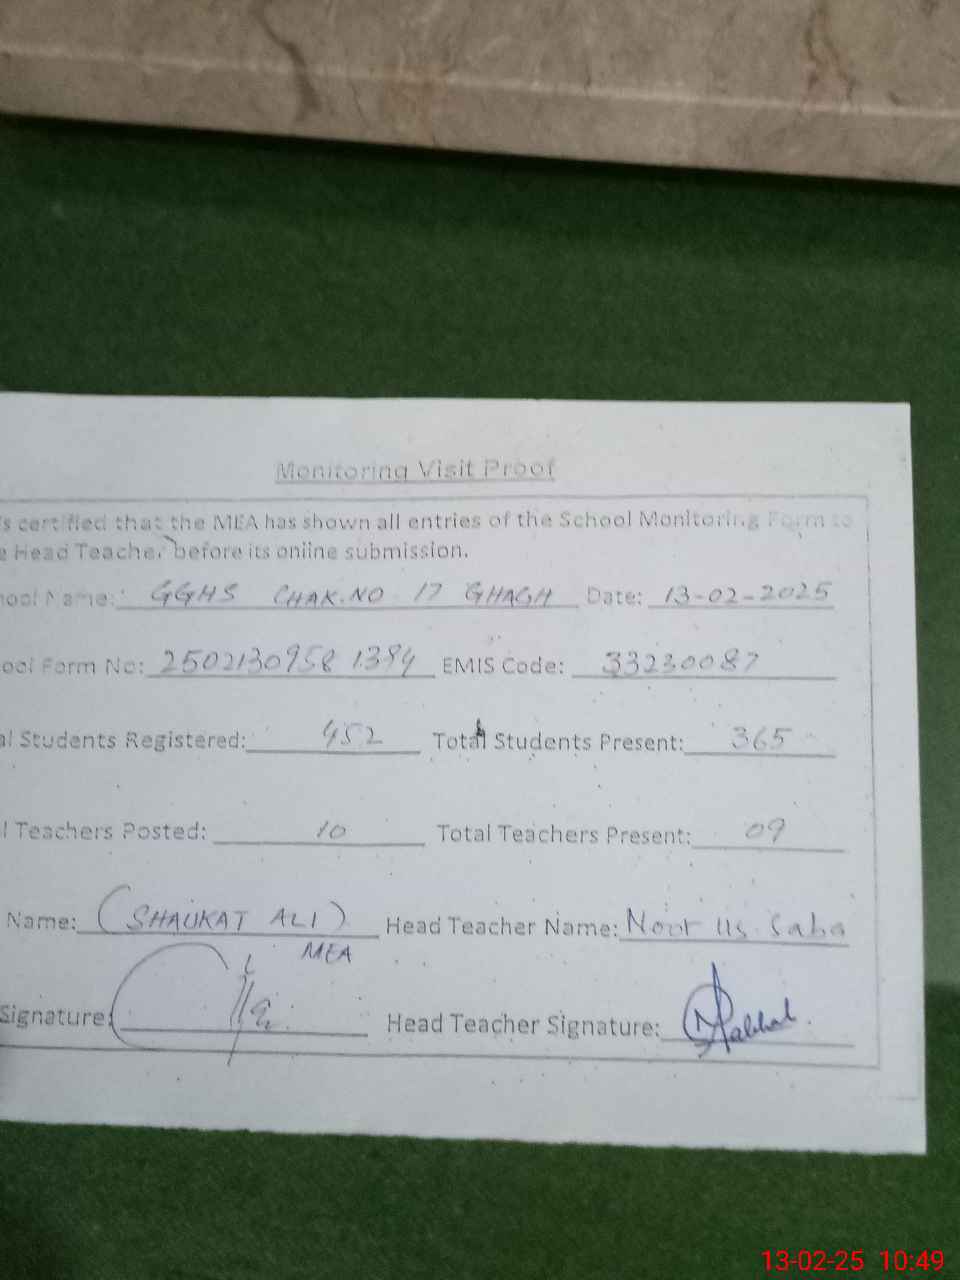 Monitoring Visit Proof
s certified that the MEA has shown all entries of the School Monitoring Form to
e Head Teacher before its online submission.
hool Name: GGHS CHAK.NO 17 GHAGH Date: 13-02-2025
ool Form No: 2502130958 1394 EMIS Code: 33230087
al Students Registered: 452 Total Students Present: 365
l Teachers Posted: 10 Total Teachers Present: 09
Name: (SHAUKAT ALI) Head Teacher Name: Noor us Saba
MEA
Signature: Head Teacher Signature:
13-02-25 10:49